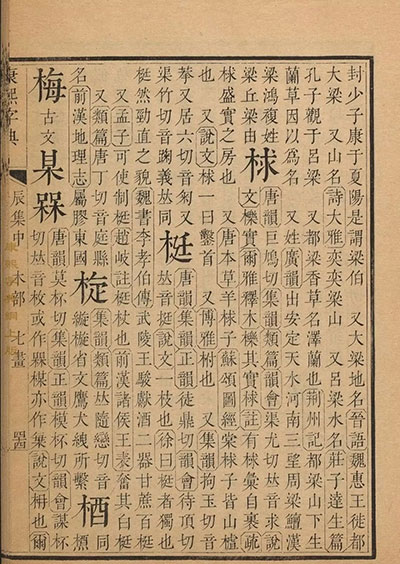 封少子康于夏陽是謂梁伯　又大梁地名晉語魏惠王徙都
大梁　又山名詩大雅奕奕梁山　又呂梁水名莊子達生篇
孔子觀于呂梁　又都梁香草名澤蘭也荊州記都梁山下生
蘭草因以爲名　又姓廣韻出安定天水河南三望周梁鱣漢
梁鴻複姓
梁丘梁由
梂
唐韻巨鳩切集韻類篇韻會渠尤切𠀤音求說
文櫟實爾雅釋木櫟其實梂註有梂彙自裹疏
梂盛實之房也　又唐本草羊梂子蘇頌圖經棠梂子皆山樝
也　又說文梂一曰鑿首　又博雅柎也　又集韻拘玉切音
又居六切音匊又
渠竹切音踘義𠀤同
梃
唐韻集韻正韻徒鼎切韻會待頂切
𠀤音挺說文一枚也徐曰梃者獨也
梃然勁直之貌魏書李孝伯傳武陵王駿獻酒二器甘蔗百梃
又孟子可使制梃趙岐註梃杖也前漢諸侯王表奮其白梃
又類篇唐丁切音庭縣
名前漢地理志屬膠東國
集韻類篇𠀤隨戀切音
縼縼省文鷹犬絏所繫
梄
同
槱
梅
古文
槑
唐韻莫杯切集韻正韻模杯切韻會謀杯
切𠀤音枚或作楳亦作說文枏也爾
康熙字典
辰集中　木部　七畫